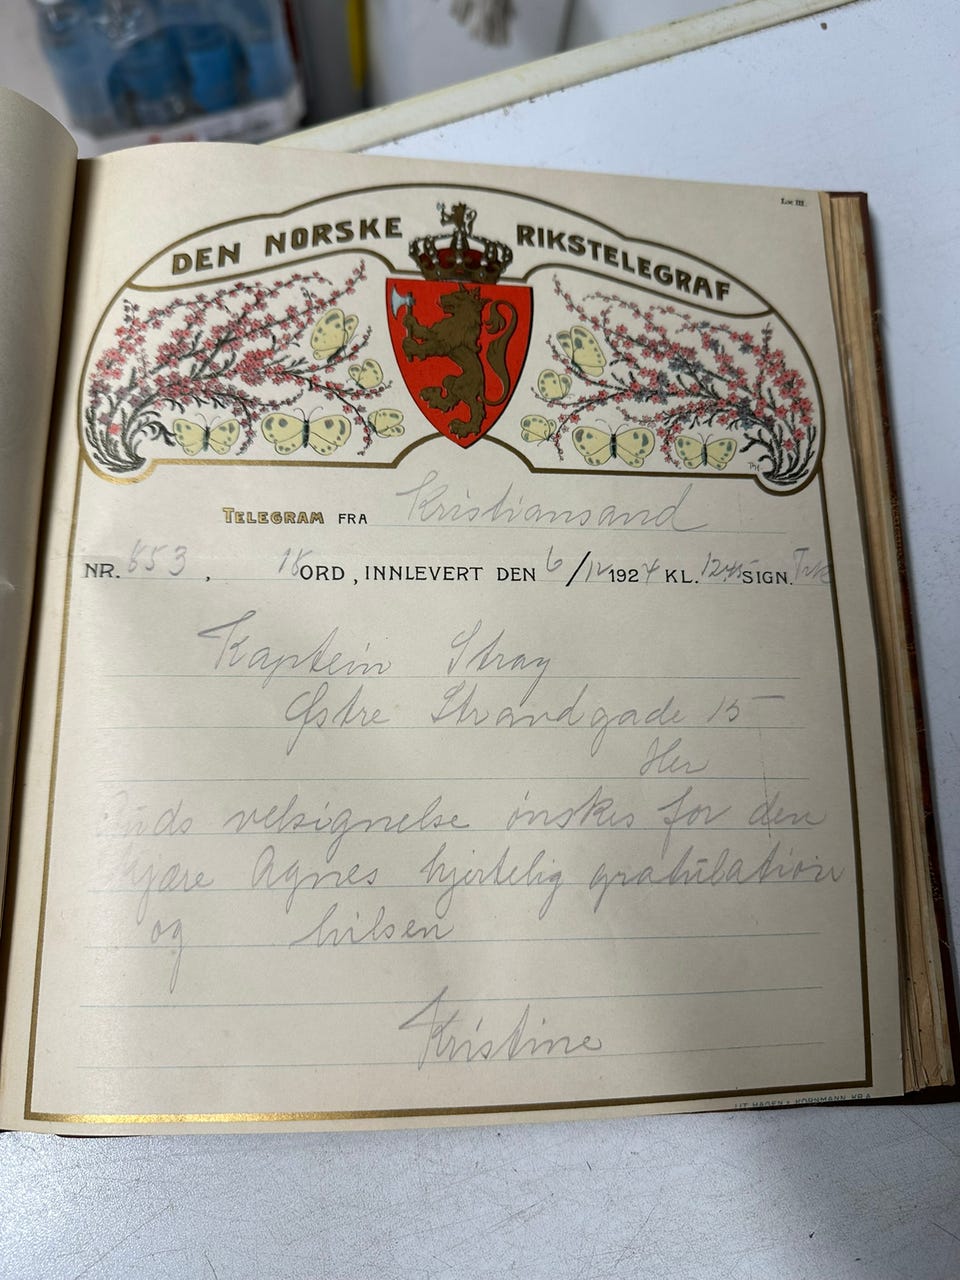 Lx III.
DEN NORSKE RIKSTELEGRAF
TELEGRAM FRA Kristiansand
NR. 853, 18 ORD, INNLEVERT DEN 6/12 1924 KL. 1245 SIGN.
Kaptein Stray
Østre Strandgade 15
Her
Guds velsignelse ønskes for den
kjære Agnes hjertelig gratulation
og hilsen
Kristine
LIT. HAGEN & KORNMANN, KR.A